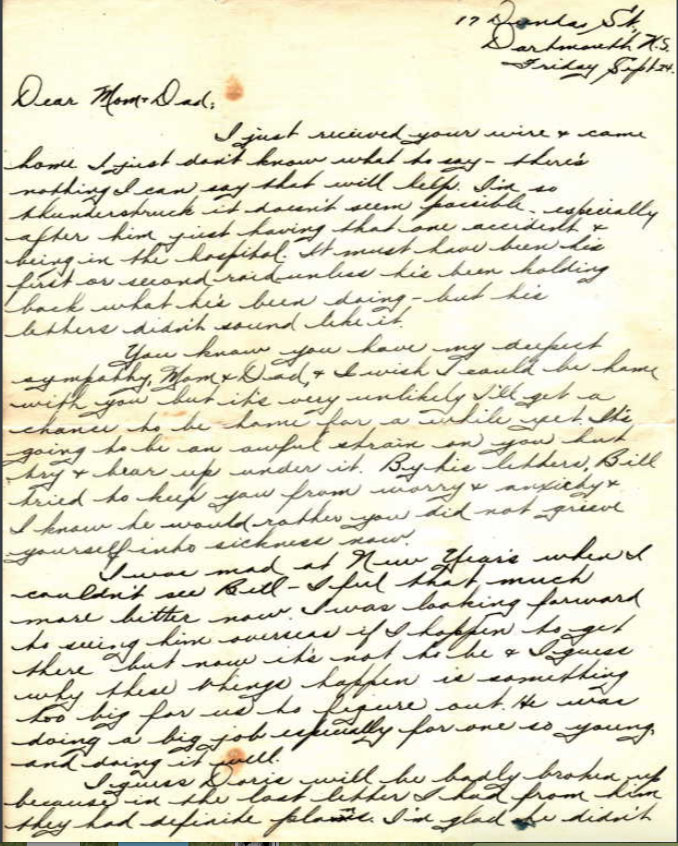 17 Dundas St.
Dartmouth N.S.
Friday Sept 24.
Dear Mom & Dad;
I just recieved your wire & came
home I just don't know what to say - there's
nothing I can say that will help. I'm so
thunderstruck it doesn't seem possible - especially
after him just having that one accident &
being in the hospital. It must have been his
first or second raid unless he's been holding
back what he's been doing - but his
letters didn't sound like it.
You know you have my deepest
sympathy, Mom & Dad, & I wish I could be home
with you but it's very unlikely I'll get a
chance to be home for a while yet. It's
going to be an awful strain on you but
try & bear up under it. By his letters, Bill
tried to keep you from worry & anxiety &
I know he would rather you did not grieve
yourself into sickness now.
I was mad at New Year's when I
couldn't see Bill - I feel that much
more bitter now. I was looking forward
to seeing him overseas if I happen to get
there but now it's not to be & I guess
why these things happen is something
too big for us to figure out. He was
doing a big job especially for one so young,
and doing it well.
I guess Doris will be badly broken up
because in the last letter I had from him
they had definite plans. I'm glad he didn't